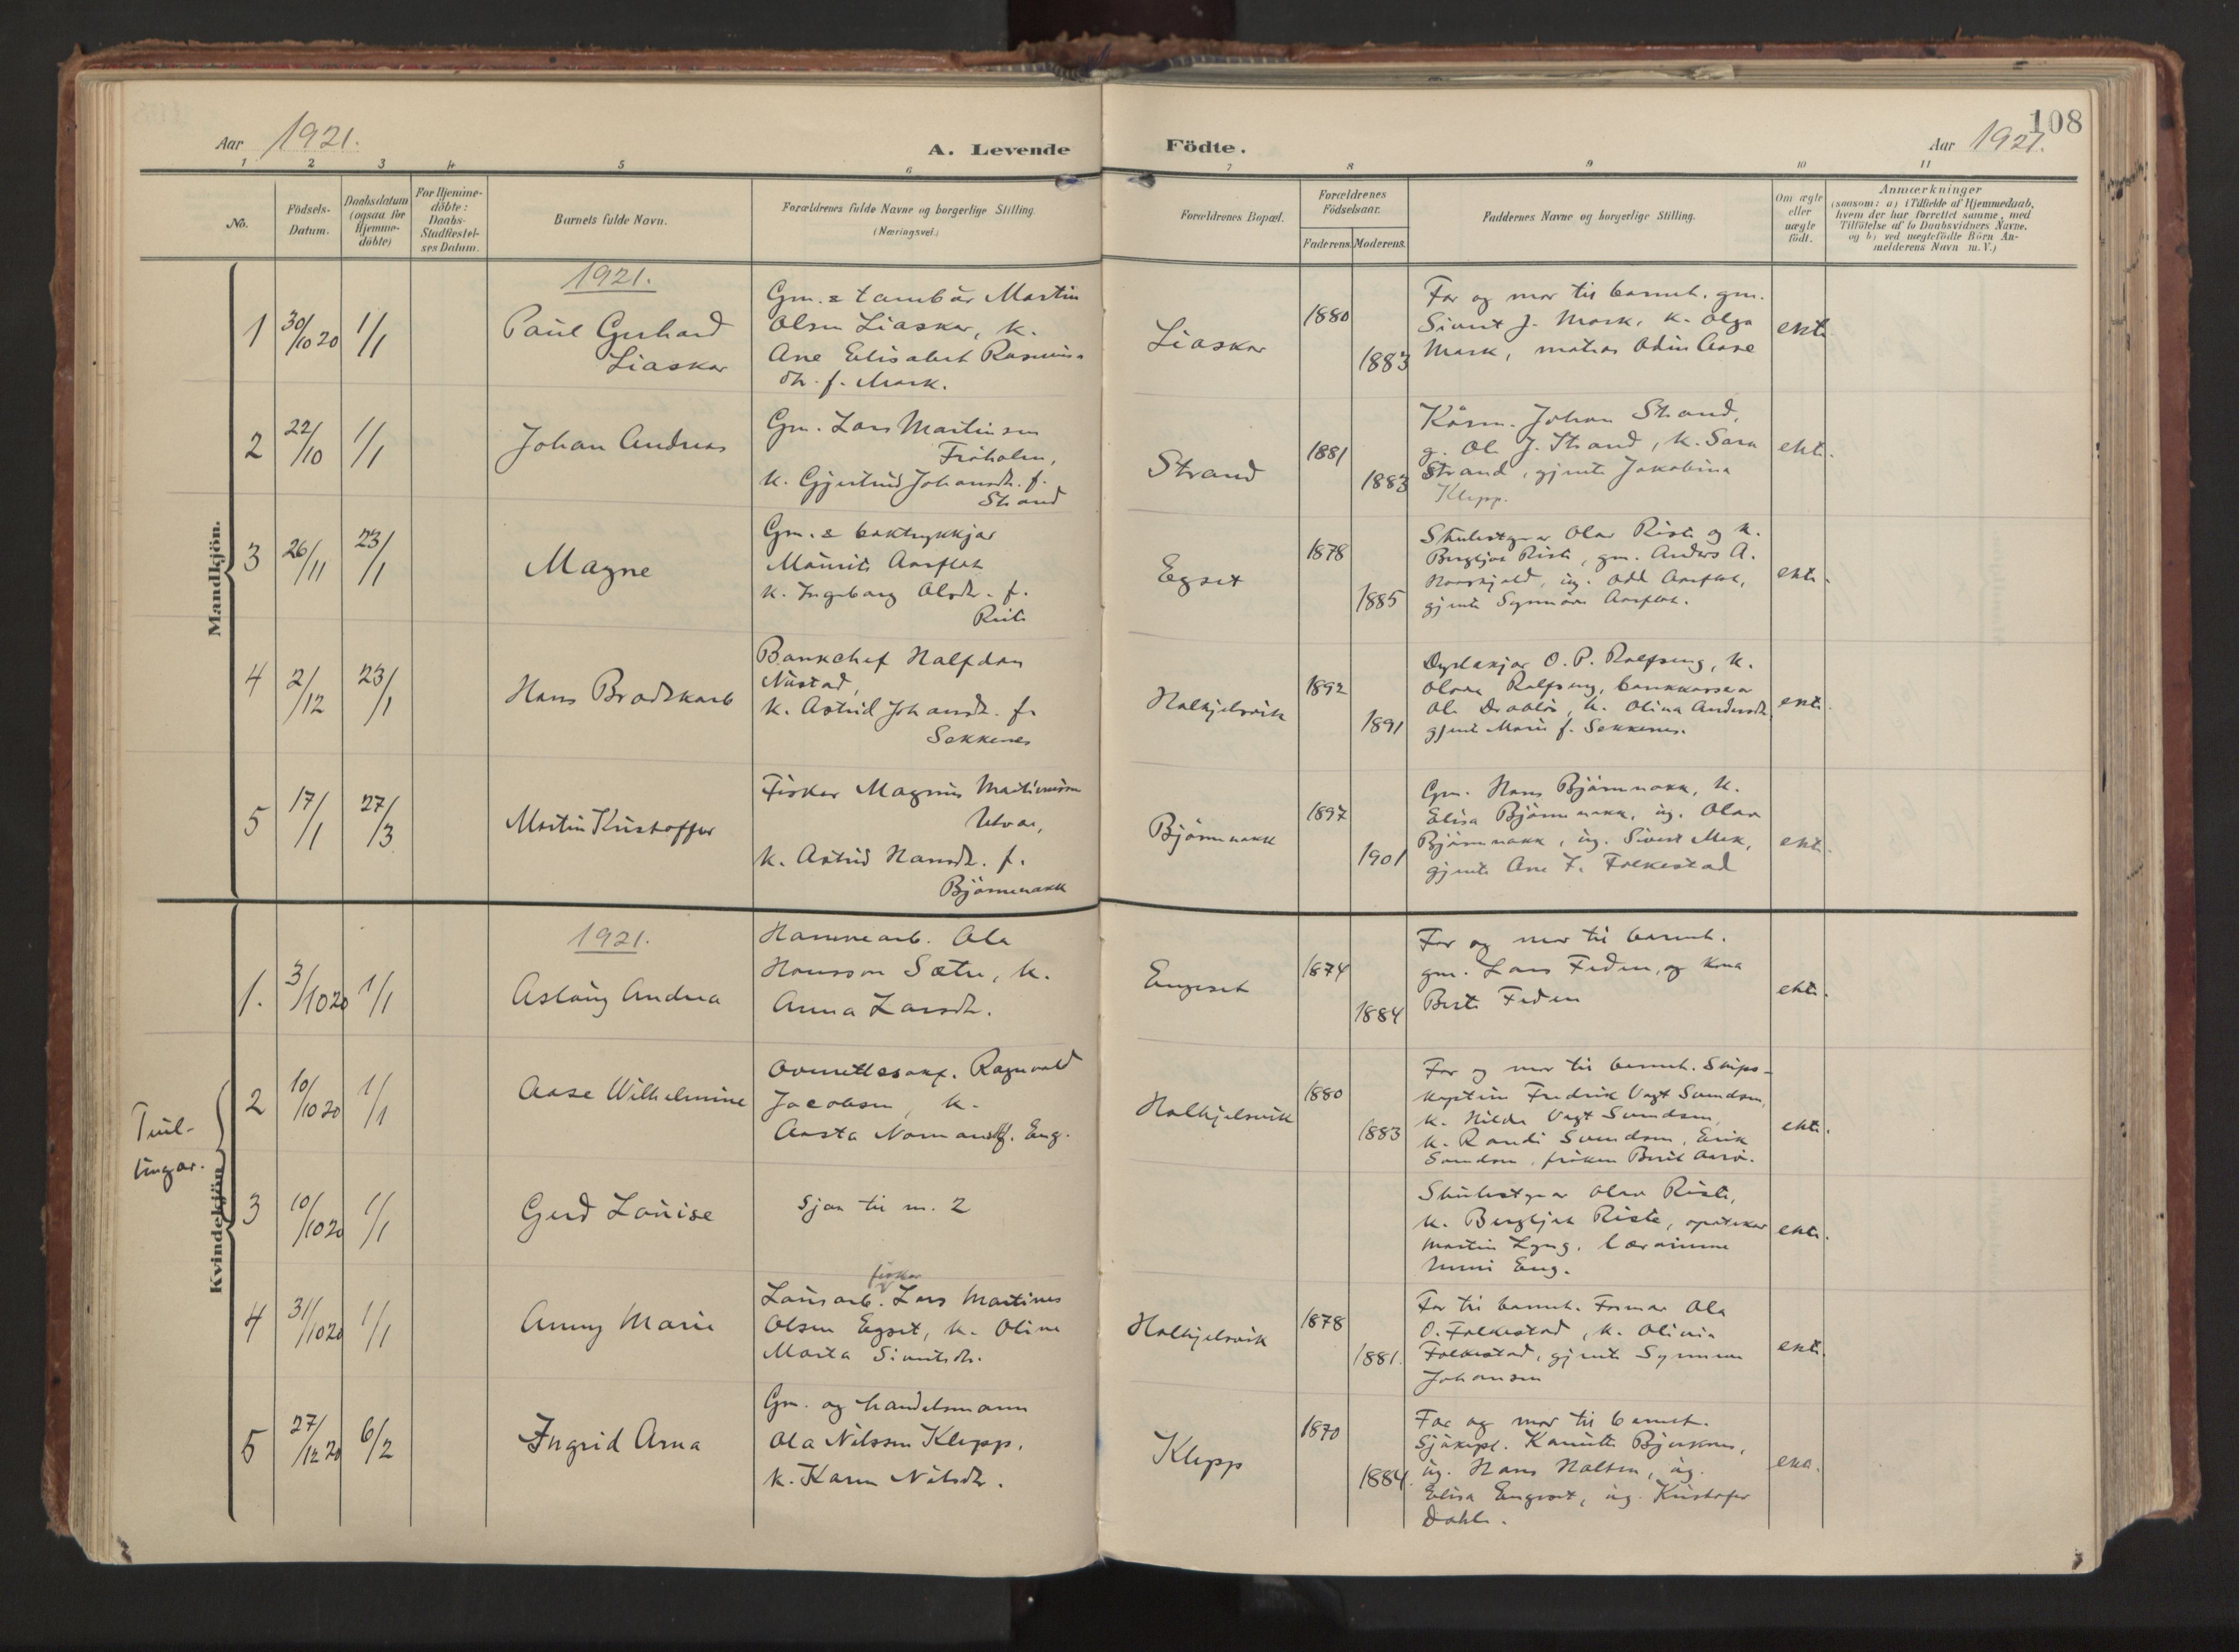 108
Aar 1921.
A. Levende Födte.
Aar 1921.
1 2 3 4 5 6 7 8 9 10 11
No.
Födsels-
Datum.
Daabsdatum
(ogsaa for
Hjemme-
döbte)
For Hjemme-
döbte:
Daabs-
Stadfæstel-
ses Datum.
Barnets fulde Navn.
Forældrenes fulde Navne og borgerlige Stilling.
(Næringsvei.)
Forældrenes Bopæl.
Forældrenes
Födselsaar.
Faderens. Moderens.
Faddernes Navne og borgerlige Stilling.
Om ægte
eller
uægte
født.
Anmærkninger
(saasom: a) i Tilfælde af Hjemmedaab,
hvem der har forrettet samme, med
Tilföielse af to Daabsvidners Navne,
og b) ved uægtefödte Börn An-
melderens Navn m. V.)
Mandkjön.
1921.
1
30/10 20
1/1
Paul Gerhard
Liaskar
Gm. & tambur Martin
Olsen Liaskar, k.
Ane Elisabet Rasmus-
dtr. f. Mork.
Liaskar
1880
1883
Far og mor til barnet. gm.
Sivert J. Mork, k. Olga
Mork, matros Odin Aase
ekte
2
22/10
1/1
Johan Andreas
Gm. Lars Martinsen
Fröholm,
k. Gjertrud Johansdtr. f.
Strand
Strand
1881
1883
Kårm. Johan Strand,
g. Ole J. Strand, k. Sara
Strand, gjente Jakobina
Klepp.
ekte.
3
26/11
23/1
Magne
Gm. & boktrykkjar
Maurits Aarflot
k. Ingeborg Olsdtr. f.
Riste
Egset
1878
1885
Skulestyrar Olav Riste og k.
Bergljot Riste, gm. Anders A.
ug. Odd Aarflot,
gjente Synnöve Aarflot.
ekte.
4
2/12
23/1
Hans Brodskorb
Bankchef Halfdan
Nustad,
k. Astrid Johansdtr. f.
Sekkenes
Halkjelsvik
1892
1891
Dyrlækjar O. P. Rolfseng, k.
Olava Rolfseng, bankkasserar
Ole Drablös, k. Olina Andersdtr.
gjente Marie f. Sekkenes.
ekte.
5
17/1
27/3
Martin Kristoffer
Fisker Magnus Martinusson
Utvær,
k. Astrid Hansdtr. f.
Björnenakk
Björnenakk
1897
1901
Gm. Hans Björnenakk, k.
Elisa Björnenakk, ug. Olav
Björnenakk, ug. Sivert Mek,
gjente Ane F. Folkestad
ekte.
Kvindekjön
1921.
1.
3/10 20
1/1
Aslaug Andrea
Hamnearb. Ola
Hansson Sætre, k.
Anna Larsdtr.
Engeset
1874
1884
Far og mor til barnet.
gm. Lars Feden, og kona
Berte Feden
ekte.
Tvil-
lingar.
2
10/10 20
1/1
Aase Wilhelmine
Overrettssakf. Ragnvald
Jacobsen, k.
Aasta Normansdtr. f. Eng.
Halkjelsvik
1880
1883
Far og mor til barnet. Skips-
kaptein Fredrik Vogt Svendsen,
k. Hilda Vogt Svendsen,
k. Randi Svendsen, Erik
Svendsen, fröken Berit Aarö.
ekte.
3
10/10 20
1/1
Gerd Louise
Sjaa til nr. 2
Skulestyrar Olav Riste,
k. Bergljot Riste, apotekar
Martin Lyng, lærarinne
Mimi Eng.
ekte.
4
31/10 20
1/1
Anny Marie
fisker
Lausarb. Lars Martinus
Olsen Egset, k. Oline
Marta Sivertsdtr.
Halkjelsvik
1878
1881.
Far til barnet. Formar Ola
O. Folkestad, k. Olivia
Folkestad, gjente Synneve
Johansen
ekte.
5
27/12 20
6/2
Ingrid Arna
Gm. og handelsmann
Ola Nilssen Klepp,
k. Karen Nilsdtr.
Klepp
1870
1884.
Far og mor til barnet.
Sjåkapt. Bjerknes,
ug. Hans Holten, ug.
Elisa Engeset, ug. Kristofer
Dahle.